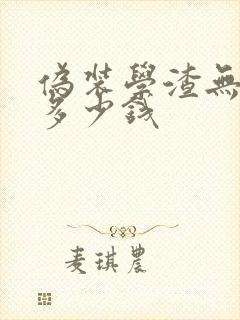 偽裝學渣無
多少錢
麦琪農